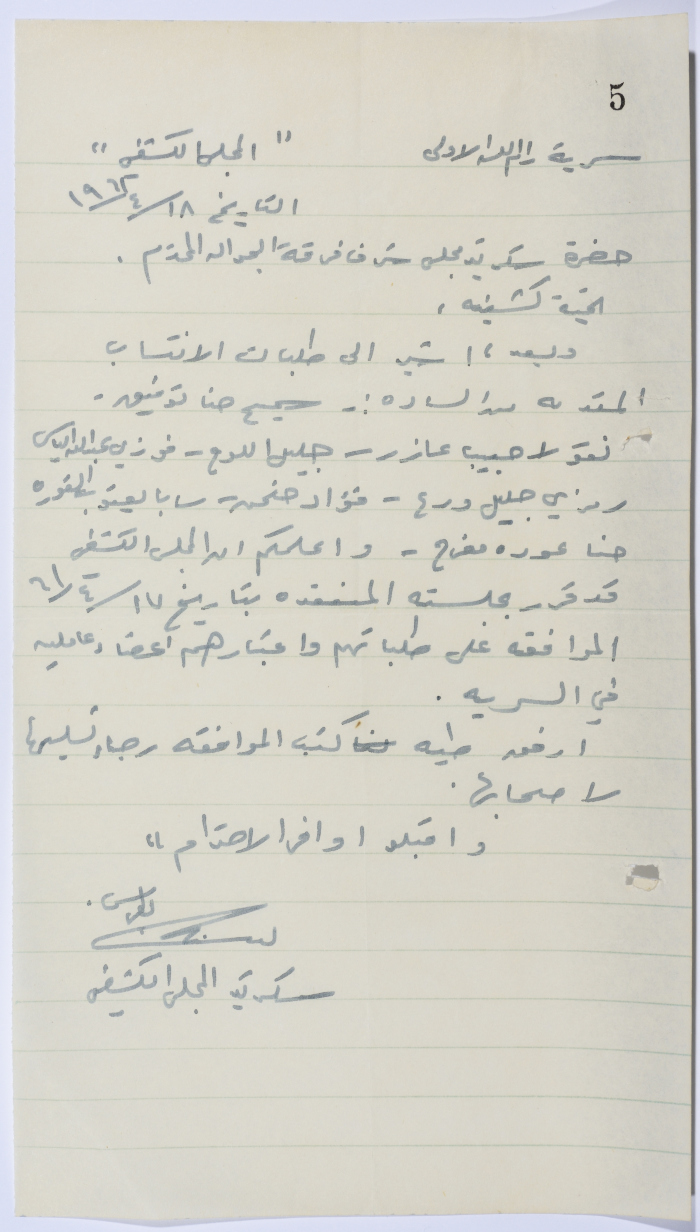 5
سرية رام الله الاولى " المجلس الكشفي "
التاريخ ١٨/٤/١٩٦٢
حضرة سكرتير مجلس شرف فرقة الجواله المحترم .
تحية كشفيه ،
وبعد ،، اشير الى طلبات الانتساب
المقدمه من الساده :ـ سميح حنا توفيق -
نقولا حبيب عازر - جليل اللدع - فوزي عبدالله الياس
رمزي جليل ودع - فؤاد حنحن - سابا يعقوب القوره
حنا عوده مفرح - واعلمكم ان المجلس الكشفي
قد قرر بجلسته المنعقده بتاريخ ١٧/٤/٦٢
الموافقه على طلباتهم واعتبارهم اعضاء عاملين
في السريه .
ارفق طيه كتب الموافقه رجاء تسليمها
لاصحابها .
واقبلوا وافر الاحترام ،،
سكرتير المجلس الكشفي